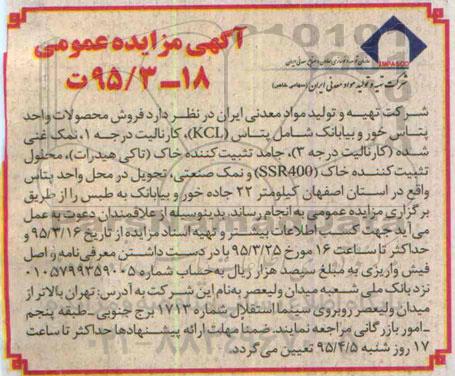 آگهی مزایده عمومی
۱۸ـ۹۵/۳ت
IMPASCO
شرکت تهیه و تولید مواد معدنی ایران (سهامی خاص)
شرکت تهیه و تولید مواد معدنی ایران در نظر دارد فروش محصولات واحد
پتاس خور و بیابانک شامل پتاس (KCL)، کارنالیت درجه ۱، نمک غنی
شده (کارنالیت درجه ۳)، جامد تثبیت کننده خاک (تاکی هیدرات)، محلول
تثبیت کننده خاک (SSR400) و نمک صنعتی، تحویل در محل واحد پتاس
واقع در استان اصفهان کیلومتر ۲۲ جاده خور و بیابانک به طبس را از طریق
برگزاری مزایده عمومی به انجام رساند. بدینوسیله از علاقمندان دعوت به عمل
می آید جهت کسب اطلاعات بیشتر و تهیه اسناد مزایده از تاریخ ۹۵/۳/۱۶ و
حداکثر تا ساعت ۱۶ مورخ ۹۵/۳/۲۵ با در دست داشتن معرفی نامه و اصل
فیش واریزی به مبلغ سیصد هزار ریال به حساب شماره ۰۱۰۵۷۹۹۳۵۹۰۰۵
نزد بانک ملی شعبه میدان ولیعصر به نام این شرکت به آدرس: تهران بالاتر از
میدان ولیعصر روبروی سینما استقلال شماره ۱۷۱۳ برج جنوبی ـ طبقه پنجم
ـ امور بازرگانی مراجعه نمایند. ضمنا مهلت ارائه پیشنهادها حداکثر تا ساعت
۱۷ روز شنبه ۹۵/۴/۵ تعیین می گردد.